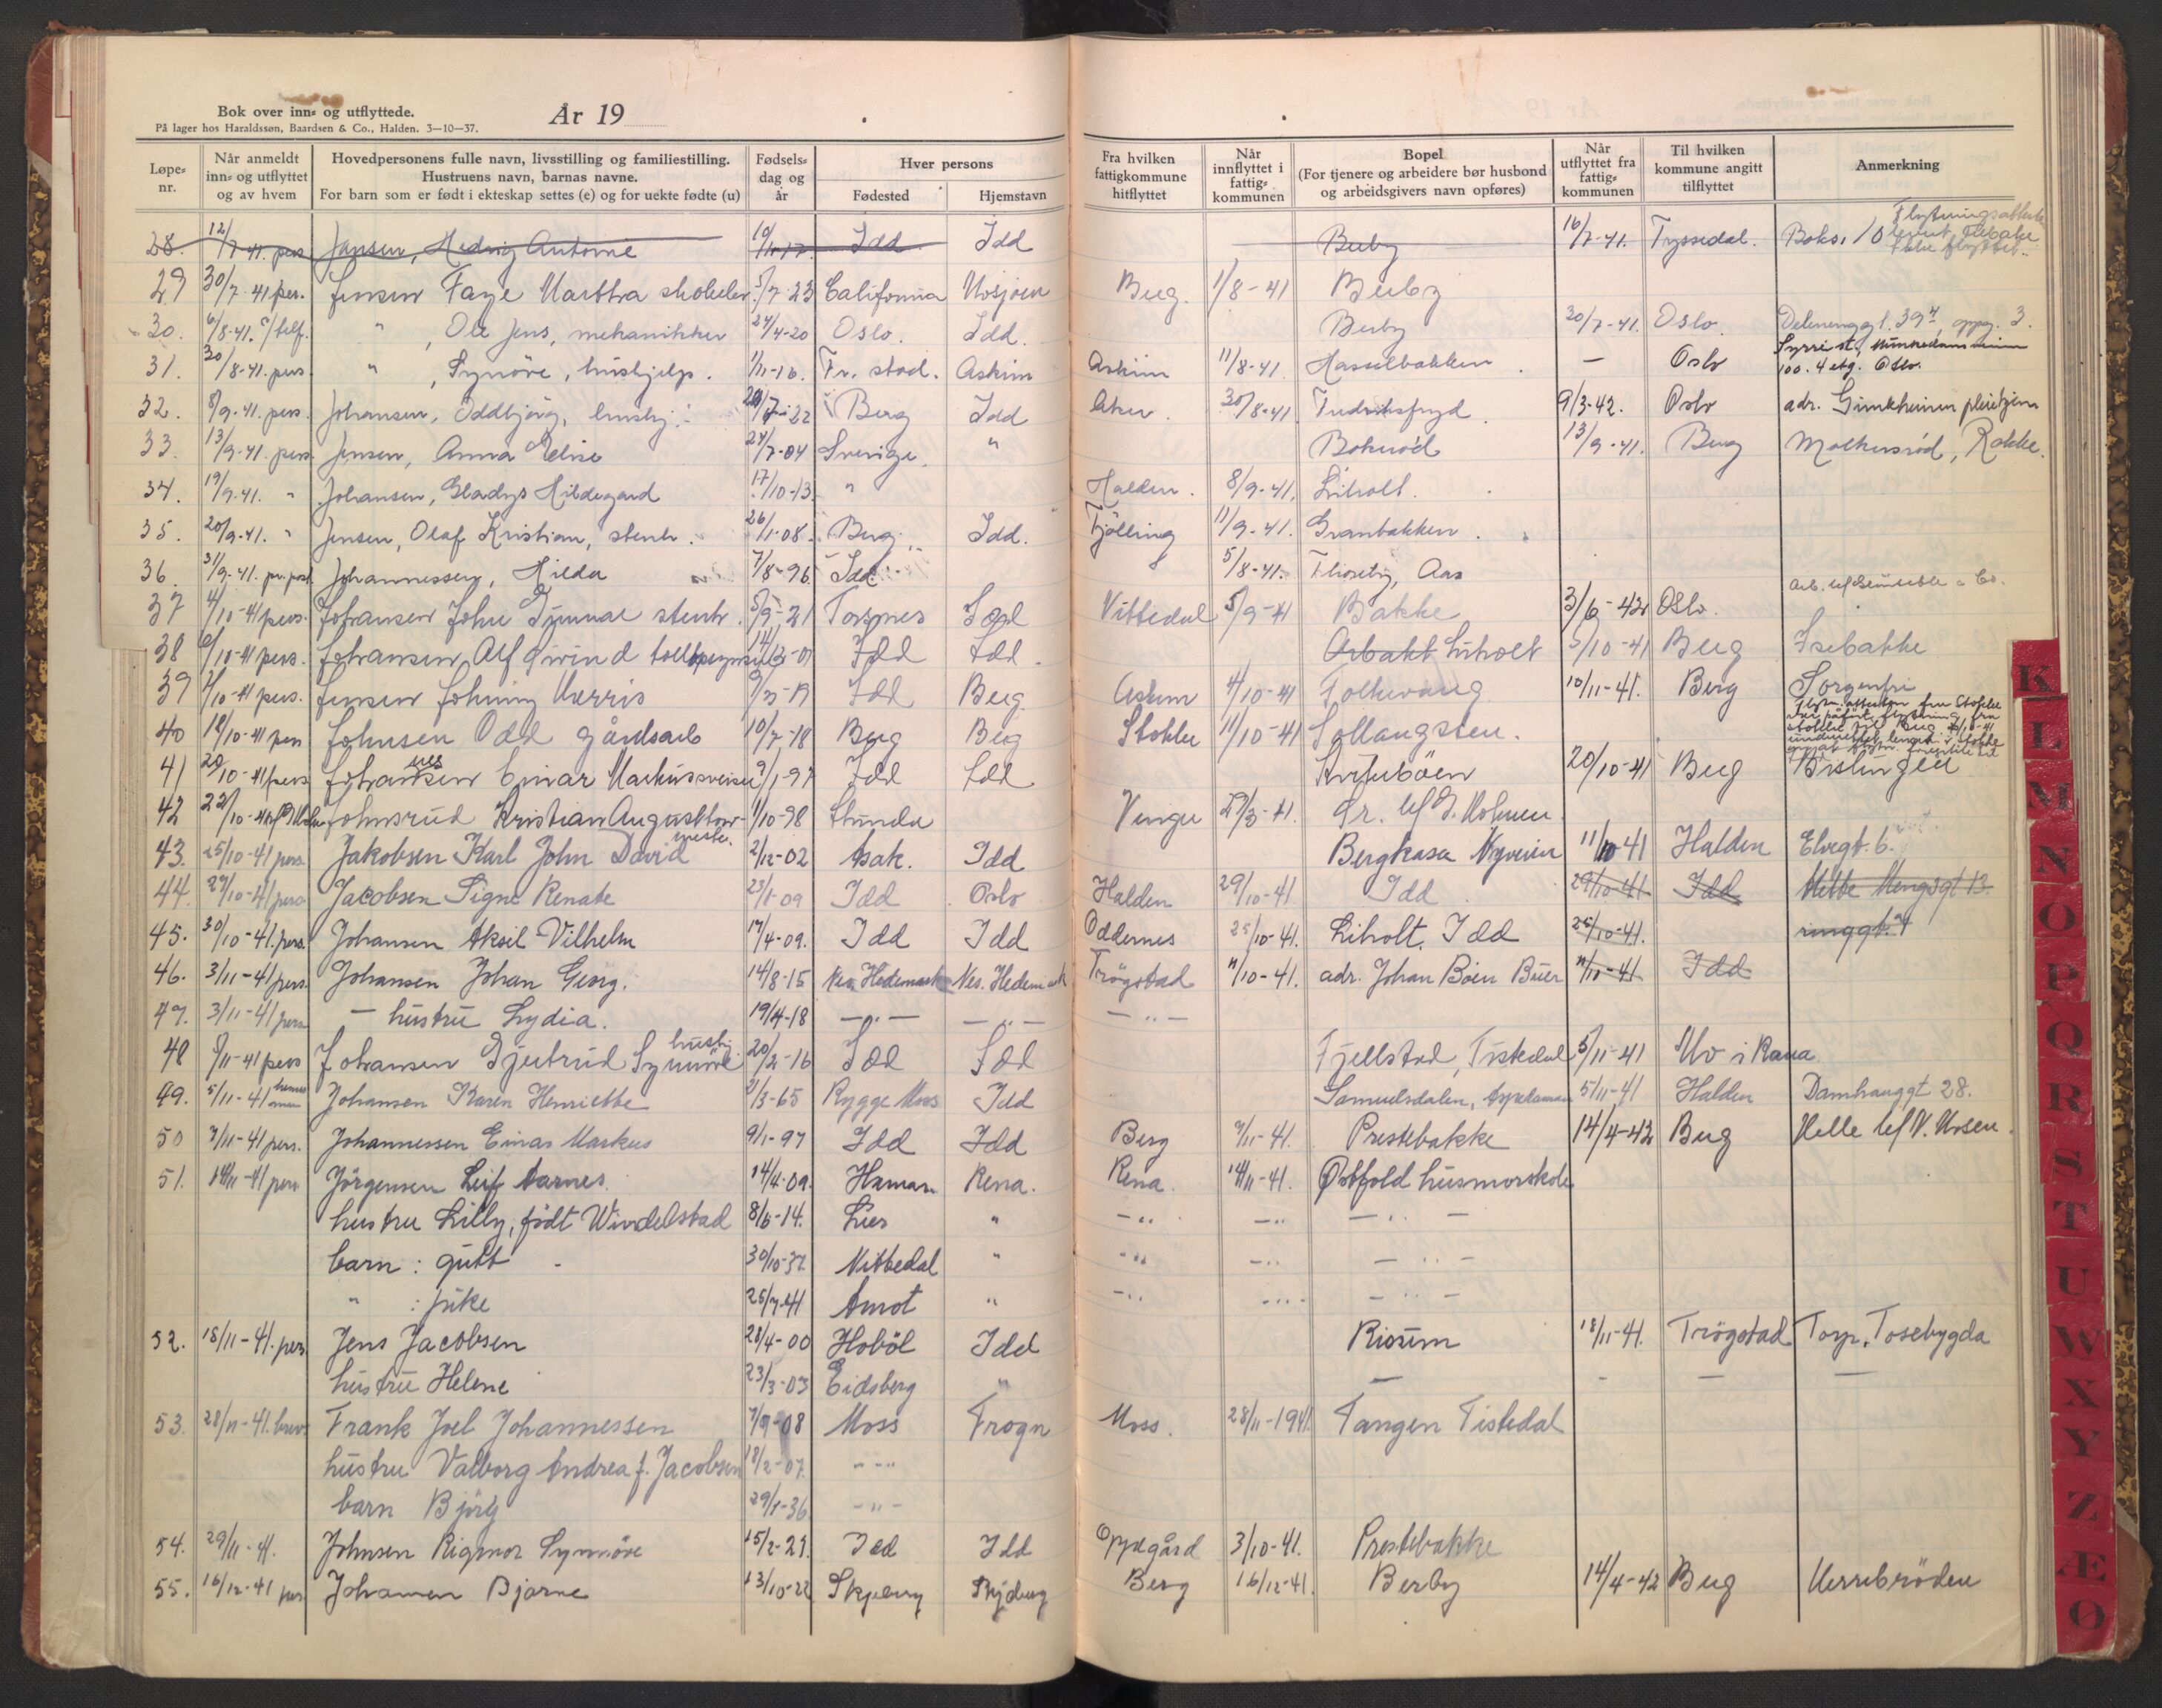 Bok over inn- og utflyttede.
På lager hos Haraldssøn, Baardsen & Co., Halden. 3—10—37.
År 19
Løpe-nr.
Når anmeldt inn- og utflyttet og av hvem
Hovedpersonens fulle navn, livsstilling og familiestilling.
Hustruens navn, barnas navne.
For barn som er født i ekteskap settes (e) og for uekte fødte (u)
Fødselsdag og år
Hver persons
Fødested
Hjemstavn
Fra hvilken fattigkommune hitflyttet
Når innflyttet i fattigkommunen
Bopel
(For tjenere og arbeidere bør husbond og arbeidsgivers navn opføres)
Når utflyttet fra fattigkommunen
Til hvilken kommune angitt tilflyttet
Anmerkning
28. 12/7-41. pers Jansen, Hedvig Antonie Idd Idd Berby 16/7-41. Tyssedal. Boks. 10
29 30/7-41 per. Jensen Faye Martha 5/7-23 California Berg. 1/8-41 Berby
30. 6/8-41. telf. " , Ole Jens, mekanikker 24/4-20 Oslo. Idd. Berby 20/7-41. Oslo. 3.
31. 30/8-41. pers " , Synöve, hushjelp. 1/11-16. Fr. stad. Askim Askim 11/8-41 Hasselbakken — Oslo 100. 4 etg. Oslo.
32. 8/9-41. pers. Johansen, Oddbjörg, hushj. Berg Idd Aker. 30/8-41 Fredriksfryd 9/3-42. Oslo adr.
33. 13/9-41. pers. Jensen, Anna Elise 24/7-04 Sverige. " Bokeröd 13/9-41. Berg Rokke.
34. 19/9-41. " Johansen, Gladys Hildegard 17/10-13 " Halden. 8/9-41. Liholt.
35. 20/9-41. " Jensen, Olaf Kristian, stenh. 26/1-08. Berg Idd. Tjölling 11/9-41. Granbakken.
36. 31/9-41. pr. post Johannessen, Hilda 7/8-96. Idd 5/8-41. Aas
37 4/10-41 pers. Johansen John Gunnar stenh. 5/9-21 Torsnes Idd Nittedal 5/9-41 Bakke 3/6-42 Oslo.
38 6/10-41 pers. Johansen Alf Eivind Idd Idd. Liholt 5/10-41 Berg Isebakke
39 7/10-41 pers. Jensen Johnny Idd Berg Askim 4/10-41 Folkvang 10/11-41. Berg Sorgenfri
40 18/10-41 pers Johnsen Odd gårdsarb 10/7-18 Berg Berg Stokke 11/10-41 Sollaugsten.
41 20/10-41 pers Johannesen Einar Markus 9/1-97 Idd Idd 20/10-41 Berg
42 22/10-41 Johnsrud Kristian August 1/10-98 Vinger 29/3-41.
43. 25/10-41 pers. Jakobsen Karl John David 2/12-02 Asak. Idd Nyveien 11/10-41 Halden Elvegt. 6.
44. 29/10-41 pers. Jacobsen Signe Renate 23/1-09 Idd Oslo Halden 29/10-41 Idd 29/10-41 Idd Mette Mengsgt 13
45. 30/10-41. pers. Johansen Aksil Vilhelm 17/4-09. Idd Idd Oddernes 25/10-41. Liholt, Idd 25/10-41.
46. 3/11-41 pers. Johansen Johan Georg. 14/8-15 Nes Hedemark Nes. Hedemark Trögstad adr. Johan Böen Buer Idd
47. 3/11-41 pers — hustru Lydia. 19/4-18 — " — — " — — " —
48 5/11-41 pers Johansen Gjertrud Synnöve hushj. 20/2-16 Idd Idd Fjellstad, Tistedal 5/11-41 Mo i Rana
49. 5/11-41 Johansen Karen Henriette Rygge Moss Idd Samuelsdalen, 5/11-41 Halden Damhauggt 28.
50 7/11-41 pers. Johannessen Einar Markus 9/1-97 Idd Idd Berg 7/11-41. Prestebakke 14/4-42 Berg
51. 14/11-41 pers Jörgensen Leif Aarnes. 14/4-09. Hamar Rena. Rena. 14/11-41. Østfold husmorskole
hustru Lilly, født Windelstad 8/6-14. Lier " — " — " — " —
barn: gutt 30/10-37. Nittedal " — " — " — " —
" : pike 25/7-41 Åmot " — " — " — " —
52. 18/11-41. pers Jens Jacobsen 28/4-00 Hoböl Idd Risum 18/11-41. Trögstad Torp. Tosebygda
hustru Helene 23/3-03 Eidsberg " — — — —
53. 28/11-41. brev Frank Joel Johannessen 7/9-08 Moss Frogn Moss. 28/11-1941. Tangen Tistedal
hustru Valborg Andrea f. Jacobsen 18/2-07 — " —
barn Björg 29/1-36 — " —
54. 29/11-41. Johnsen Rigmor Synnöve 15/2-21. Idd Idd Oppegård 3/10-41. Prestebakke
55. 16/12-41 pers Johansen Bjarne 13/10-22 Skjeberg Skjeberg Berg 16/12-41. Berby 14/4-42 Berg
K
L
M
N
O
P
Q
R
S
T
U
W
X
Y
Z
Æ
Ø